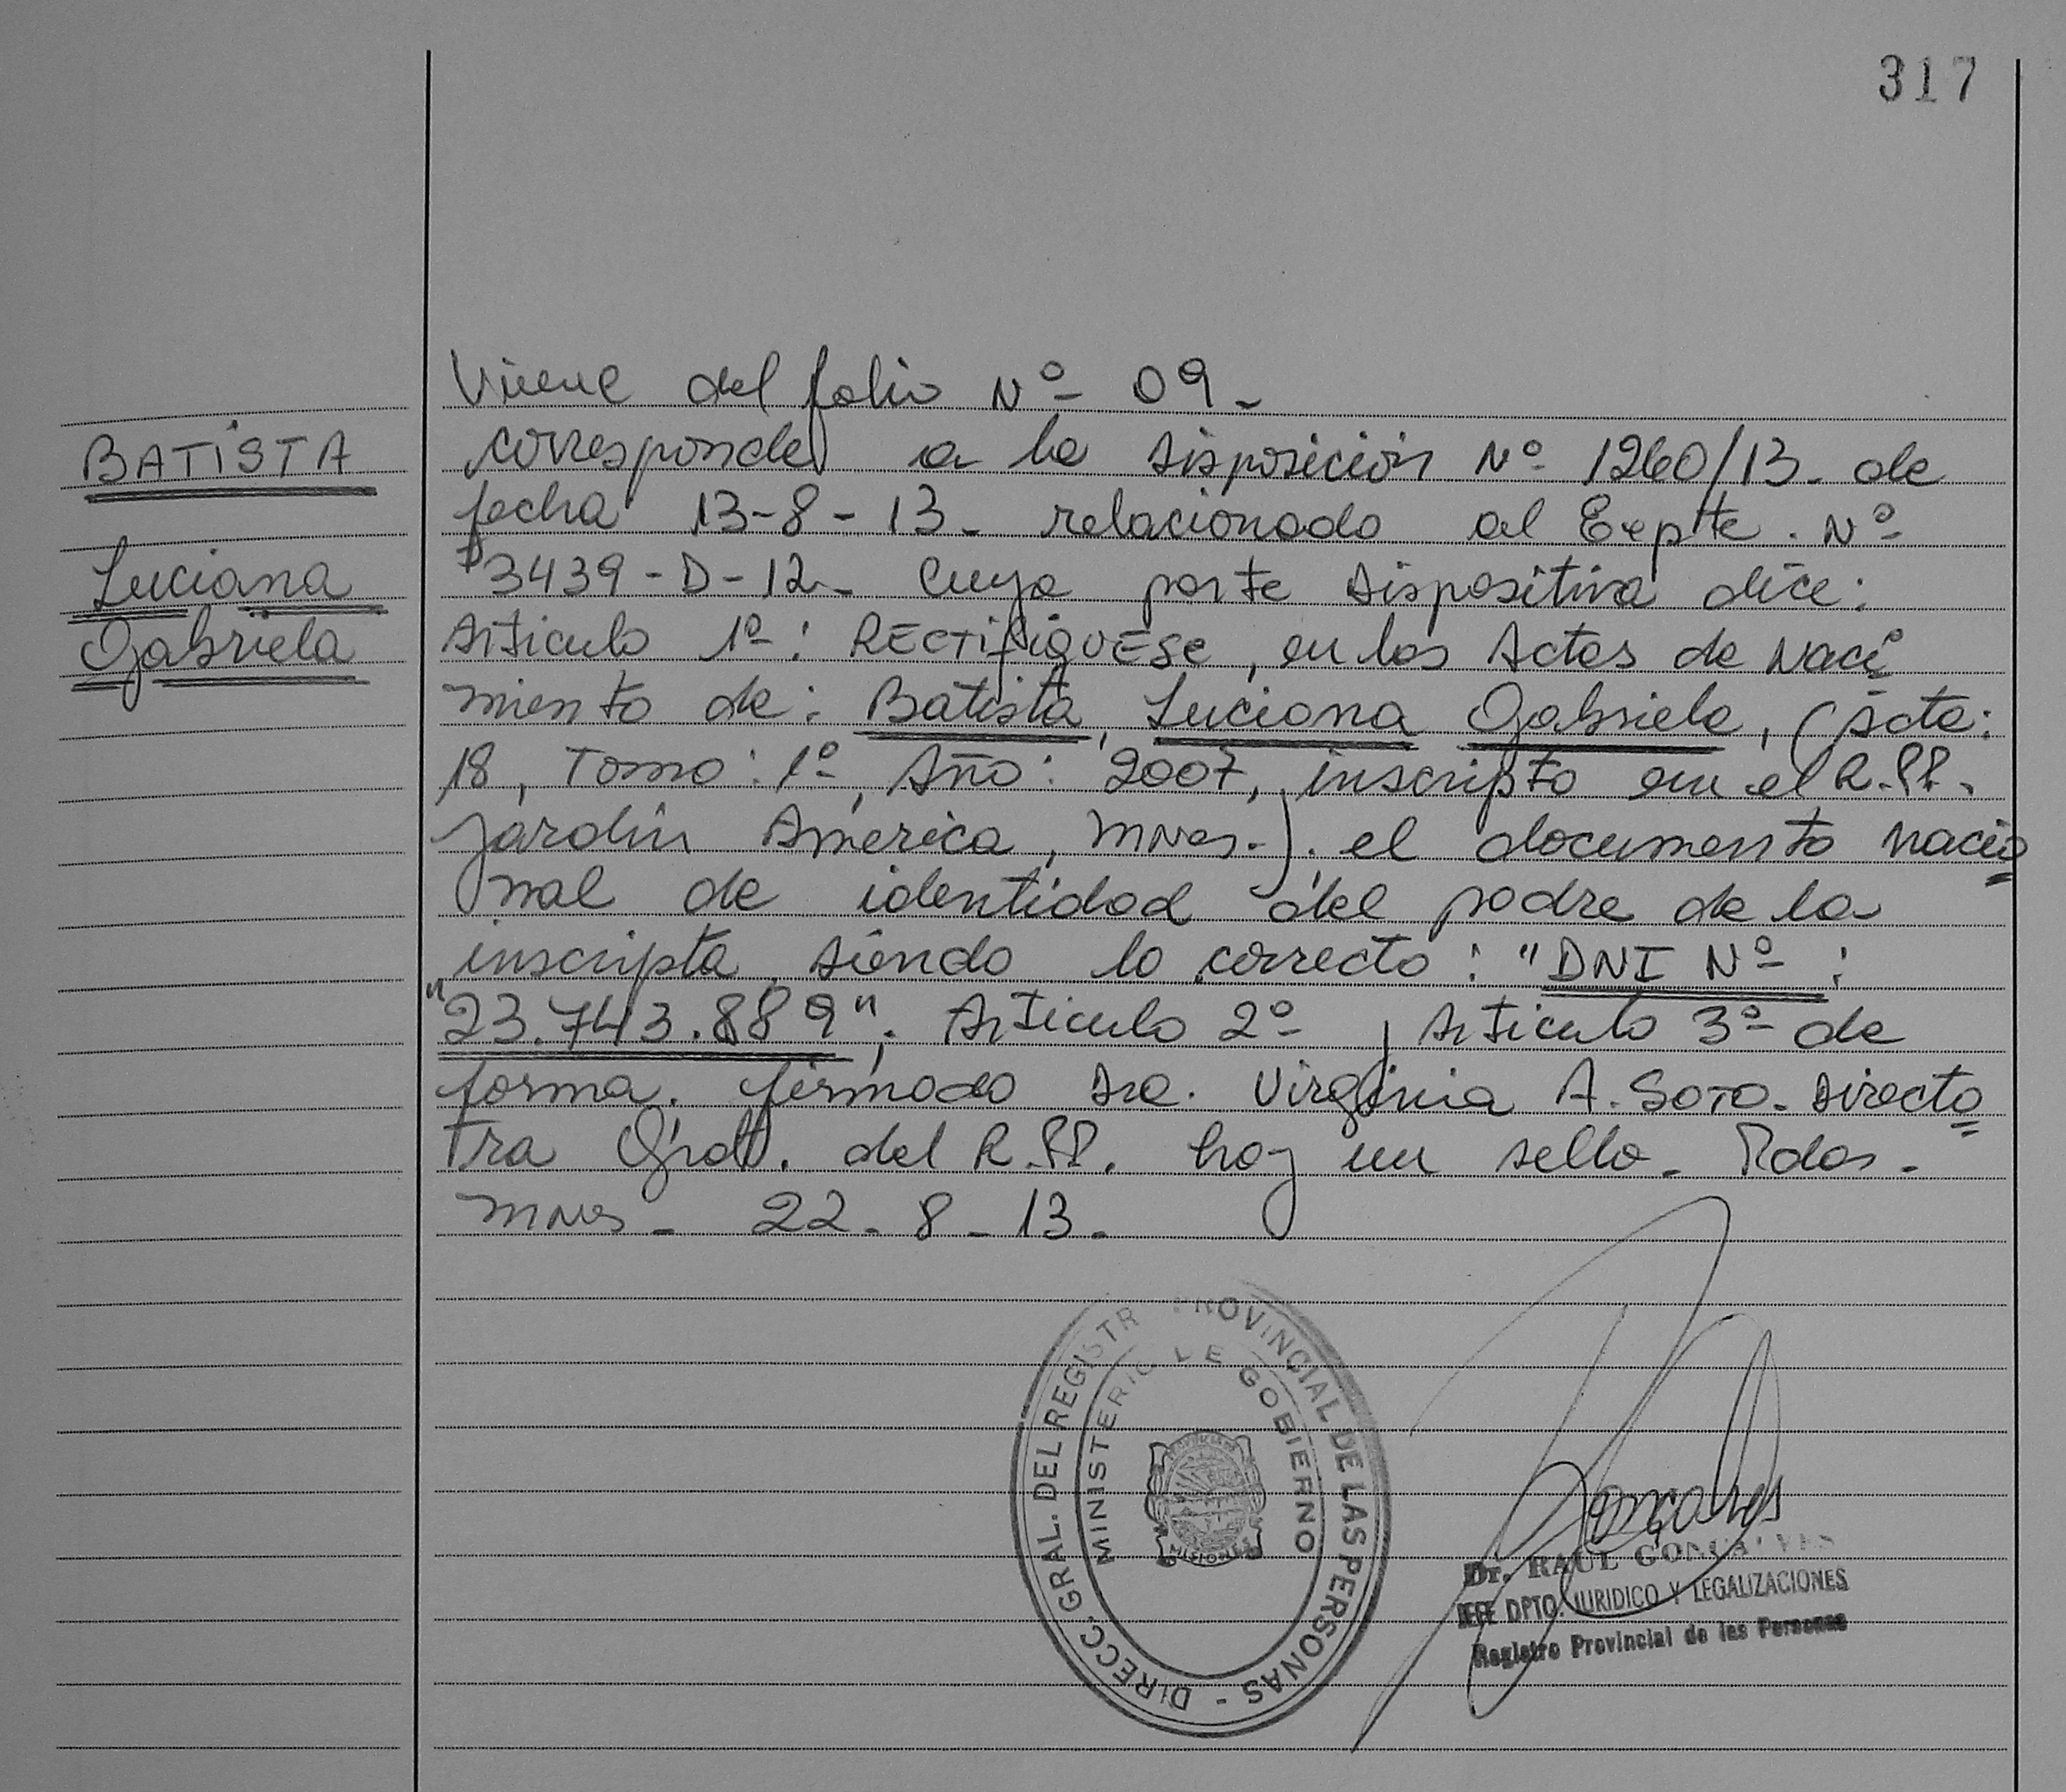 317
Viene del folio Nº 09-
BATISTA
Luciana
Gabriela
corresponde a la disposición Nº 1260/13- de
fecha 13-8-13- relacionado al Expte. Nº
3439-D-12- cuya parte dispositiva dice:
Articulo 1º: RECTIFIQUESE, en las Actas de Naci
miento de: Batista, Luciana Gabriela, (Acta:
18, Tomo: 1º, Año: 2007, inscripta en el R.P.P.
Jardín América, Mnes.-). el documento nacio
nal de identidad del padre de la
inscripta, siendo lo correcto: "DNI Nº:
"23.743.889"; Articulo 2º, Articulo 3º de
forma. firmado Dra. Virginia A. SOTO. Directo
ra Gral. del R.P.P. hay un sello- Pdas-
Mnes- 22-8-13.
DIRECC. GRAL. DEL REGISTR PROVINCIAL DE LAS PERSONAS -
MINISTERIO DE GOBIERNO
MISIONES
Dr. RAUL GONCALVES
JEFE DPTO. JURIDICO Y LEGALIZACIONES
Registro Provincial de las Personas